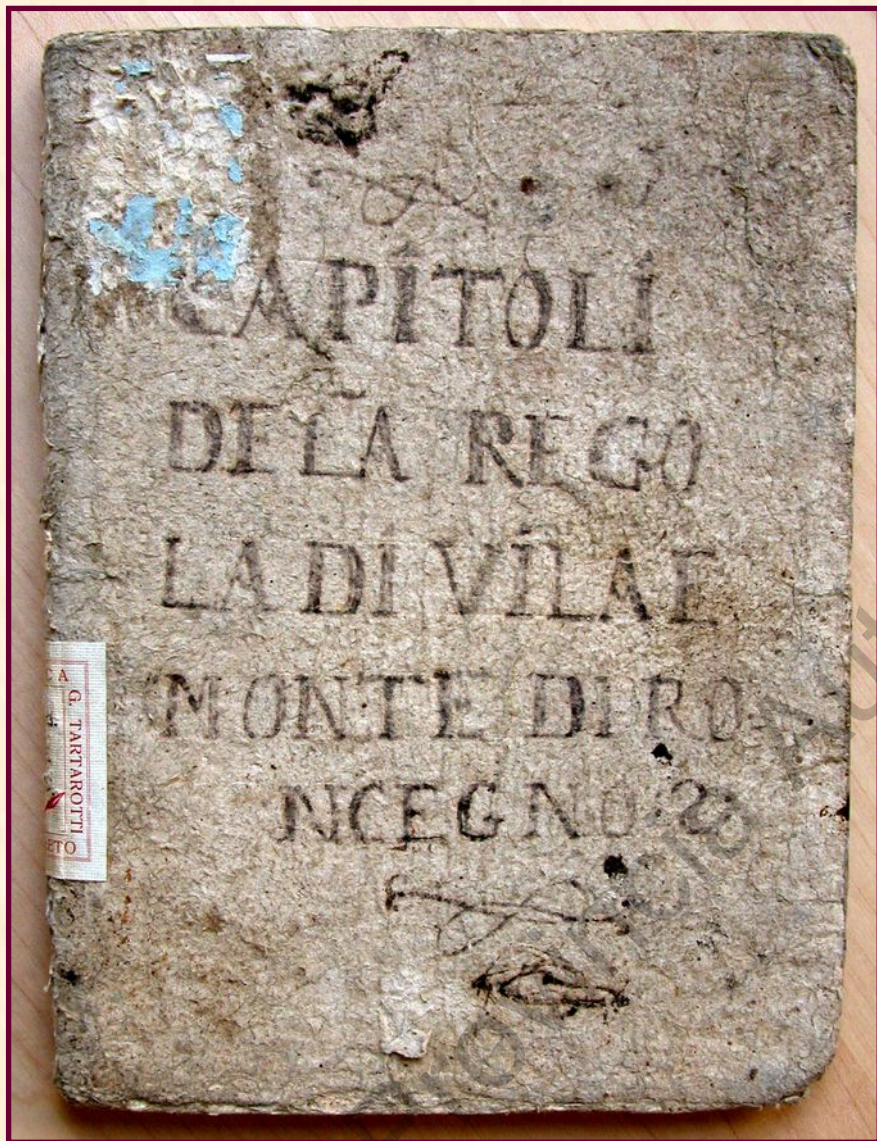 CAPÍTOLÍ
DELA REGO
LA DÍ VÍLA E
MONTE DI RO
NCEGNO
CA
G. TARTAROTTI
ETO